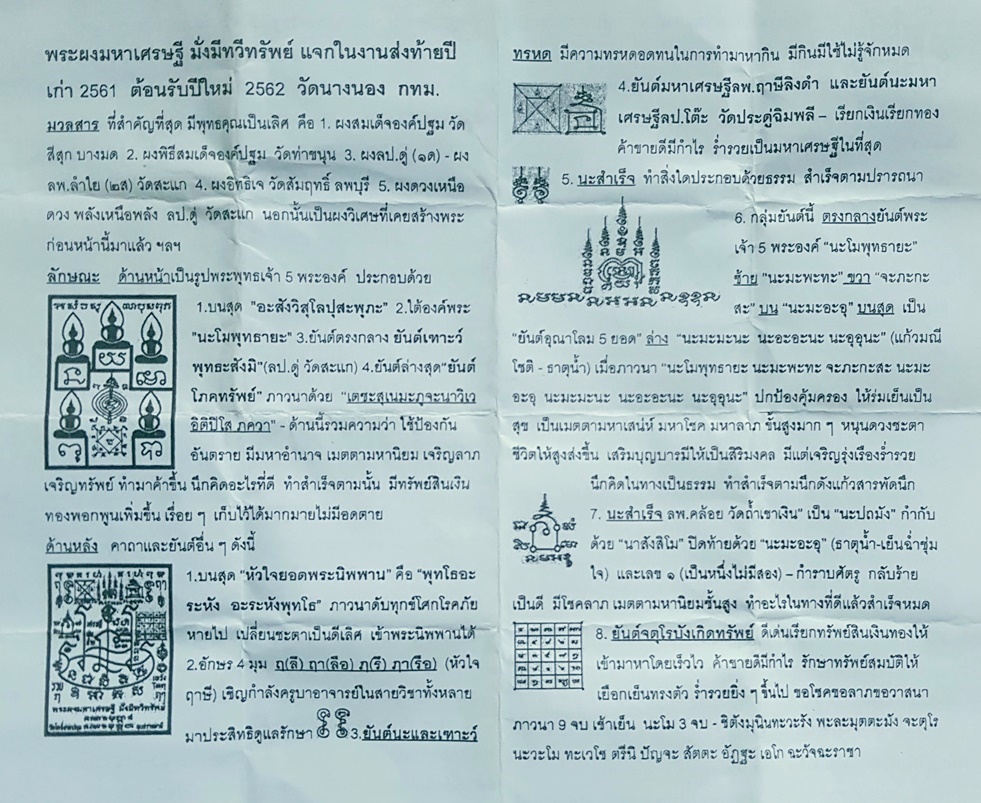 พระผงมหาเศรษฐี มั่งมีทวีทรัพย์ แจกในงานส่งท้ายปี
เก่า 2561 ต้อนรับปีใหม่ 2562 วัดนางนอง กทม.
มวลสาร ที่สำคัญที่สุด มีพุทธคุณเป็นเลิศ คือ 1. ผงสมเด็จองค์ปฐม วัด
สีสุก บางมด 2. ผงพิธีสมเด็จองค์ปฐม วัดท่าขนุน 3. ผงลป.ดู่ (๑ด) - ผง
ลพ.ลำไย (๒ส) วัดสะแก 4. ผงอิทธิเจ วัดสัมฤทธิ์ ลพบุรี 5. ผงดวงเหนือ
ดวง พลังเหนือพลัง ลป.ดู่ วัดสะแก นอกนั้นเป็นผงวิเศษที่เคยสร้างพระ
ก่อนหน้านี้มาแล้ว ฯลฯ
ลักษณะ ด้านหน้าเป็นรูปพระพุทธเจ้า 5 พระองค์ ประกอบด้วย
1.บนสุด "อะสังวิสุโลปุสะพุภะ" 2.ใต้องค์พระ
"นะโมพุทธายะ" 3.ยันต์ตรงกลาง ยันต์เฑาะว์
พุทธะสังมิ"(ลป.ดู่ วัดสะแก) 4.ยันต์ล่างสุด"ยันต์
โภคทรัพย์" ภาวนาด้วย "เตชะสุเนมะภูจะนาวิเว
อิติปิโส ภควา" - ด้านนี้รวมความว่า ใช้ป้องกัน
อันตราย มีมหาอำนาจ เมตตามหานิยม เจริญลาภ
เจริญทรัพย์ ทำมาค้าขึ้น นึกคิดอะไรที่ดี ทำสำเร็จตามนั้น มีทรัพย์สินเงิน
ทองพอกพูนเพิ่มขึ้น เรื่อย ๆ เก็บไว้ได้มากมายไม่มีอดตาย
ด้านหลัง คาถาและยันต์อื่น ๆ ดังนี้
1.บนสุด "หัวใจยอดพระนิพพาน" คือ "พุทโธอะ
ระหัง อะระหังพุทโธ" ภาวนาดับทุกข์โศกโรคภัย
หายไป เปลี่ยนชะตาเป็นดีเลิศ เข้าพระนิพพานได้
2.อักษร 4 มุม ฤ(ลึ) ฤา(ลือ) ภ(รึ) ภา(รือ) (หัวใจ
ฤาษี) เชิญกำลังครูบาอาจารย์ในสายวิชาทั้งหลาย
มาประสิทธิดูแลรักษา 3.ยันต์นะและเฑาะว์
ทรหด มีความทรหดอดทนในการทำมาหากิน มีกินมีใช้ไม่รู้จักหมด
4.ยันต์มหาเศรษฐีลพ.ฤาษีลิงดำ และยันต์นะมหา
เศรษฐีลป.โต๊ะ วัดประดู่ฉิมพลี – เรียกเงินเรียกทอง
ค้าขายดีมีกำไร ร่ำรวยเป็นมหาเศรษฐีในที่สุด
5. นะสำเร็จ ทำสิ่งใดประกอบด้วยธรรม สำเร็จตามปรารถนา
6. กลุ่มยันต์นี้ ตรงกลางยันต์พระ
เจ้า 5 พระองค์ "นะโมพุทธายะ"
ซ้าย "นะมะพะทะ" ขวา "จะภะกะ
สะ" บน "นะมะอะอุ" บนสุด เป็น
"ยันต์อุณาโลม 5 ยอด" ล่าง "นะมะมะนะ นะอะอะนะ นะอุอุนะ" (แก้วมณี
โชติ - ธาตุน้ำ) เมื่อภาวนา "นะโมพุทธายะ นะมะพะทะ จะภะกะสะ นะมะ
อะอุ นะมะมะนะ นะอะอะนะ นะอุอุนะ" ปกป้องคุ้มครอง ให้ร่มเย็นเป็น
สุข เป็นเมตตามหาเสน่ห์ มหาโชค มหาลาภ ขั้นสูงมาก ๆ หนุนดวงชะตา
ชีวิตให้สูงส่งขึ้น เสริมบุญบารมีให้เป็นสิริมงคล มีแต่เจริญรุ่งเรืองร่ำรวย
นึกคิดในทางเป็นธรรม ทำสำเร็จตามนึกดังแก้วสารพัดนึก
7. นะสำเร็จ ลพ.คล้อย วัดถ้ำเขาเงิน" เป็น "นะปถมัง" กำกับ
ด้วย "นาสังสิโม" ปิดท้ายด้วย "นะมะอะอุ" (ธาตุน้ำ-เย็นฉ่ำชุ่ม
ใจ) และเลข ๑ (เป็นหนึ่งไม่มีสอง) – กำราบศัตรู กลับร้าย
เป็นดี มีโชคลาภ เมตตามหานิยมชั้นสูง ทำอะไรในทางที่ดีแล้วสำเร็จหมด
8. ยันต์จตุโรบังเกิดทรัพย์ ดีเด่นเรียกทรัพย์สินเงินทองให้
เข้ามาหาโดยเร็วไว ค้าขายดีมีกำไร รักษาทรัพย์สมบัติให้
เยือกเย็นทรงตัว ร่ำรวยยิ่ง ๆ ขึ้นไป ขอโชคขอลาภขอวาสนา
ภาวนา 9 จบ เช้าเย็น นะโม 3 จบ - ชิตังมุนินทะวะรัง พะละมุตตะมัง จะตุโร
นะวะโม ทะเวโช ตรีนิ ปัญจะ สัตตะ อัฏฐะ เอโก ฉะวัจฉะราชา